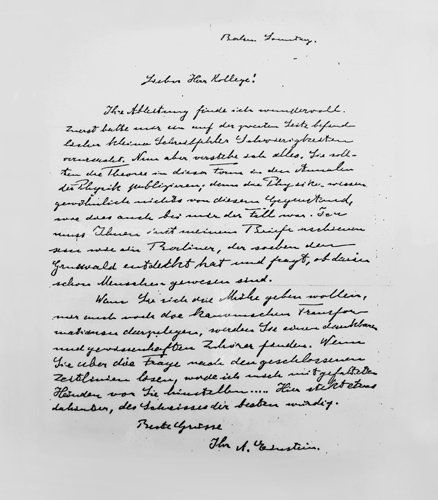 Berlin Sonntag.
Lieber Herr Kollege!
Ihre Ableitung finde ich wundervoll.
Zuerst hatte mir ein auf der zweiten Seite befind-
licher kleiner Schreibfehler Schwierigkeiten
verursacht. Nun aber verstehe ich alles. Sie soll-
ten die Theorie in dieser Form in den Annalen
der Physik publizieren, denn die Physiker wissen
gewöhnlich nichts von diesem Gegenstand,
wie dies auch bei mir der Fall war. Ich
muss Ihnen mit meinem Briefe
wie ein Berliner, der soeben den
Grunewald entdeckt hat und fragt, ob darin
schon Menschen gewesen sind.
Wenn Sie sich die Mühe geben wollen,
mir auch noch die kanonischen Transfor-
mationen darzulegen, werden Sie einen dankbaren
und gewissenhaften Zuhörer finden. Wenn
Sie aber die Frage nach den geschlossenen
Zeitlinien lösen, werde ich mich mit gefalteten
Händen vor Sie hinstellen.... Hier steckt etwas
dahinter, des Schweisses der Besten würdig.
Beste Grüsse
Ihr A. Einstein.